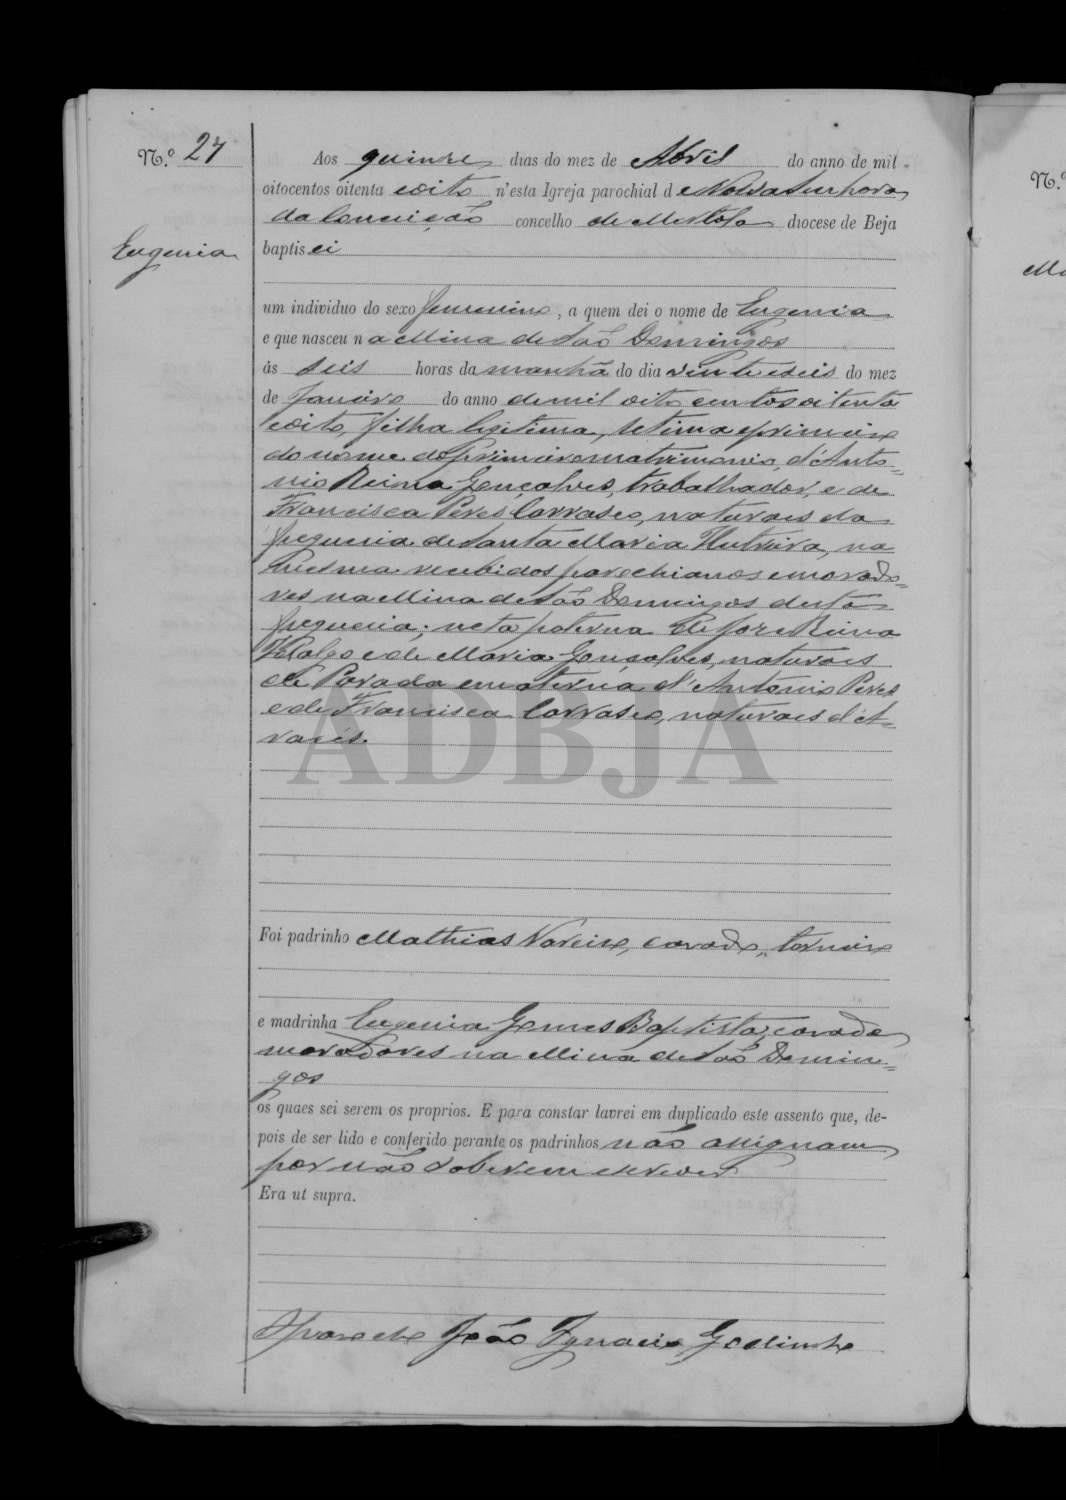 N.º 27
Aos quinze dias do mez de Abril do anno de mil
oitocentos oitenta e oito n'esta Igreja parochial de Nossa Senhora
da Conceição concelho de Mertola diocese de Beja
Eugenia
baptisei
um individuo do sexo femenino, a quem dei o nome de Eugenia
e que nasceu na Mina de São Domingos
ás seis horas da manhã do dia vinte e seis do mez
de Janeiro do anno de mil oito centos oitenta
e oito, filha legitima, setima e primeira
do nome do primeiro matrimonio, d'Anto=
nio Gonçalves, trabalhador, e de
Francisca Peres Carrasco, naturaes da
freguesia de Santa Maria, na
mesma recebidos parochianos e morado=
res na Mina de São Domingos desta
freguesia; neta paterna de José
e de Maria Gonçalves, naturaes
de Parada e materna d'Antonio Peres
e de Francisca Carrasco, naturaes d'A=
Foi padrinho Mathias, casado,
e madrinha Eugenia Gomes Baptista, casada
moradores na Mina de São Domin=
gos
os quaes sei serem os proprios. E para constar lavrei em duplicado este assento que, de-
pois de ser lido e conferido perante os padrinhos não assignam
por não saberem escrever
Era ut supra.
O Parocho João Ignacio Godinho
ADBJA
N.º